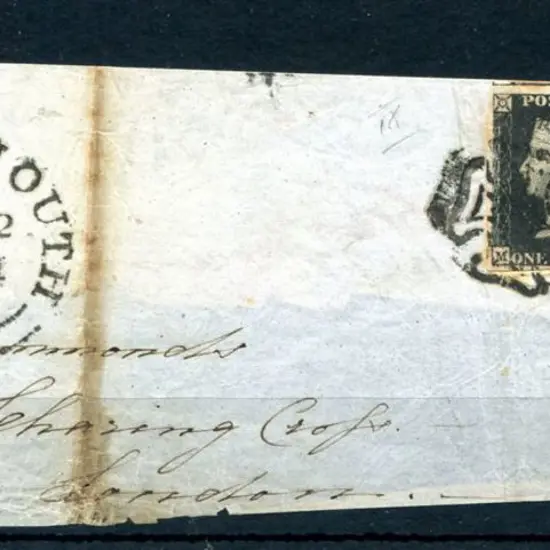 OUTH
2
18
PO
M ONE
mmonds
Charing Croſs.
London.